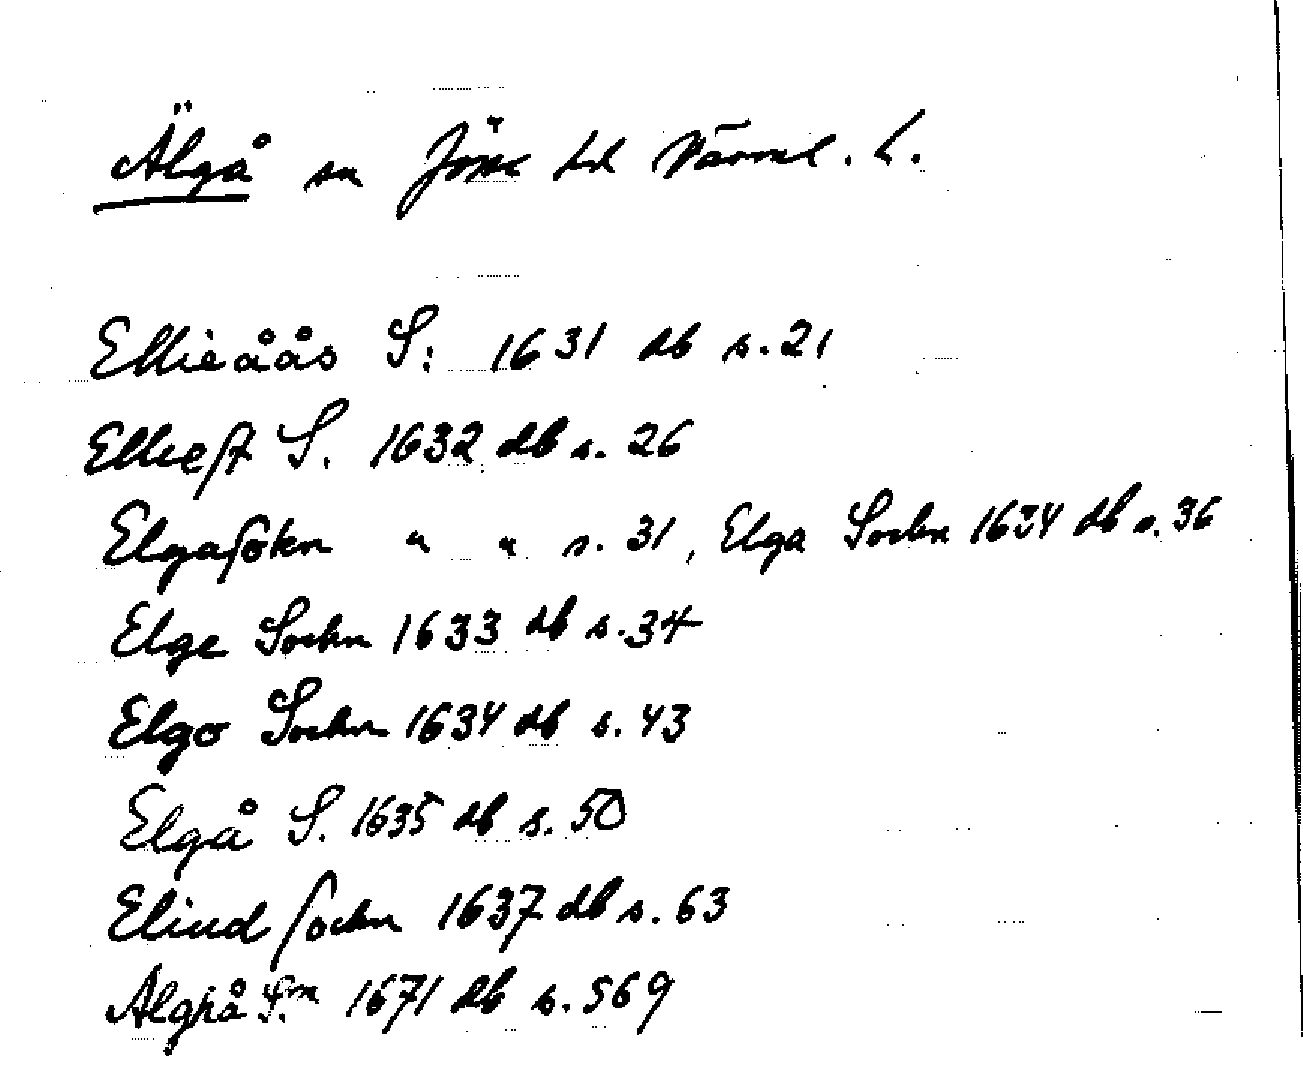 Älgå sn Jösse hd Värml. l.
Ellieåås S: 1631 db s. 21
Ellieſt S. 1632 db s. 26
Elgaſokn " " s. 31, Elga Sockn 1634 db s. 36
Elge Sockn 1633 db s. 34
Elgo Sockn 1634 db s. 43
Elgå S. 1635 db s. 50
Eliud ſockn 1637 db s. 63
Alghå S.n 1671 db s. 569